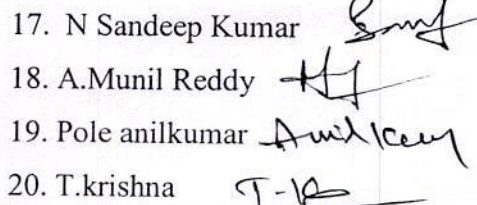 17. N Sandeep Kumar
18. A.Munil Reddy
19. Pole anilkumar Anil Kum
20. T.krishna T-K